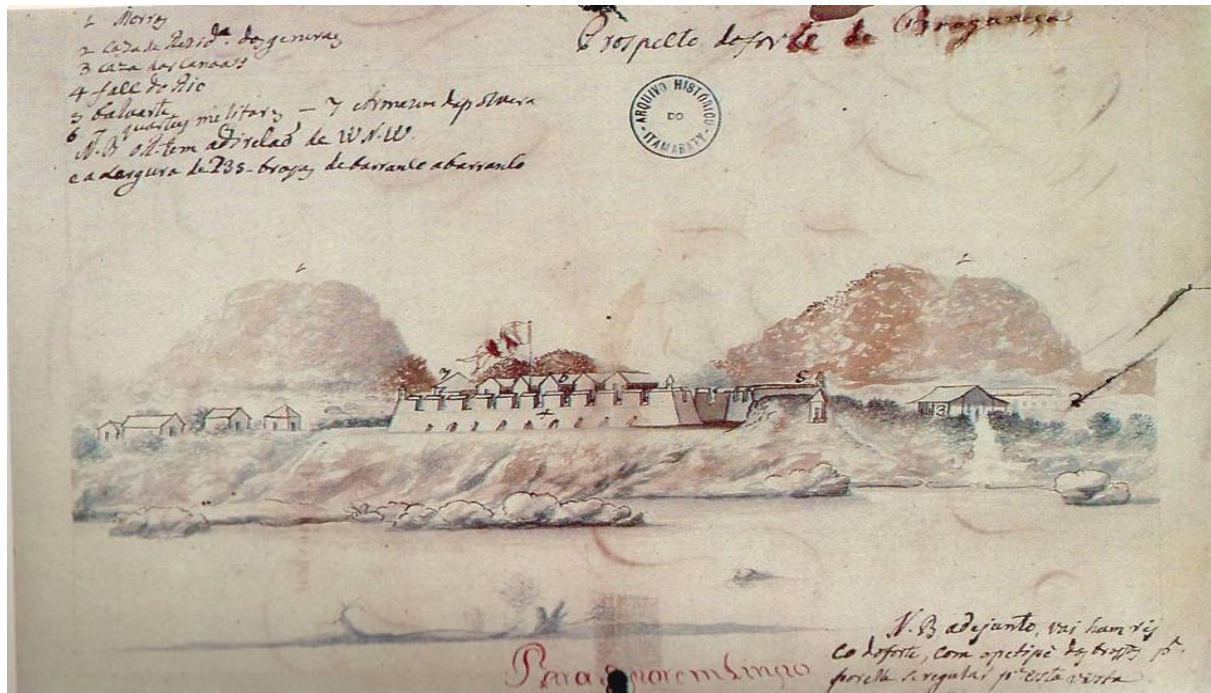 1 Morros
2 caza de Rezid.ª dos generaes
3 caza das canoas
4 fall do Rio
5 baluarte
6 7 quarteis militares — 7 Armazem da polvera
N.B o d. tem a direlaõ de W.N.W.
e a Largura de 235- brasas de barranco a barranco
Prospecto do forte de Bragança
ARQUIVO HISTORICO
DO
ITAMARATY
1
1
7
6
5
3
2
Para se por em Limpo
N.B adejunto, vai hum ris
co do forte, com o petipé
por elle se regular p.ª esta vista